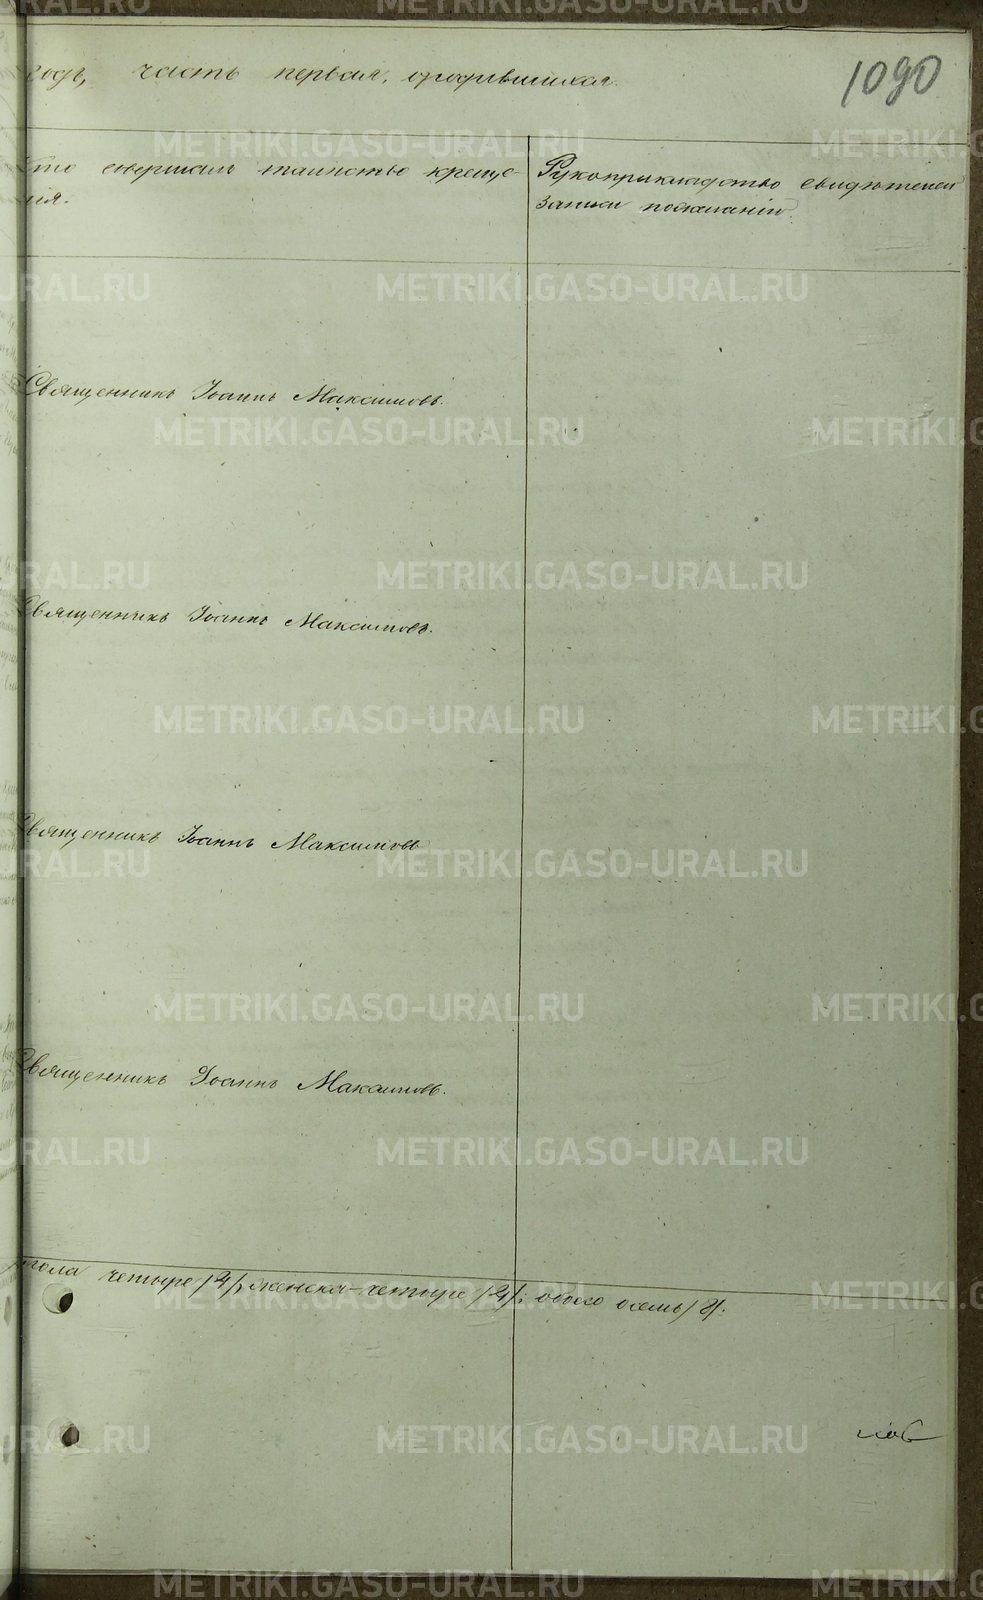 годъ, часть первая, о родившихся.
1090
Кто совершалъ таинство креще-
нія.
Рукоприкладство свидѣтелей
записи по желанію.
Священникъ Іоаннъ Максимовъ.
Священникъ Іоаннъ Максимовъ.
Священникъ Іоаннъ Максимовъ
Священникъ Іоаннъ Максимовъ.
пола четыре /4/, женска – четыре /4/; обоего осемь /8/.
METRIKI.GASO-URAL.RU